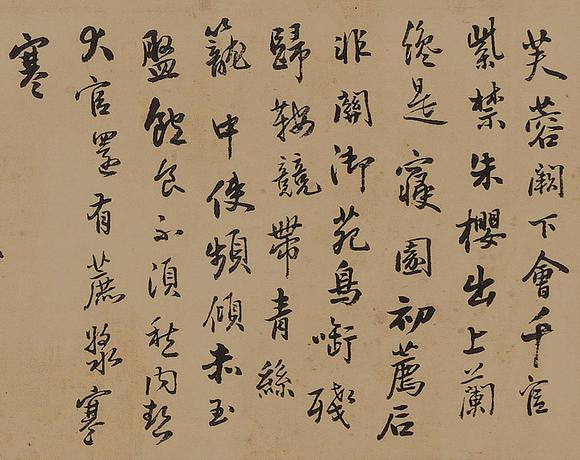 芙蓉闕下會千官
紫禁朱櫻出上蘭
纔是寢園初薦后
非關御苑鳥啣殘
歸鞍競帶青絲
籠中使頻傾赤玉
盤飽食不須愁內熱
大官還有蔗漿寒
寒